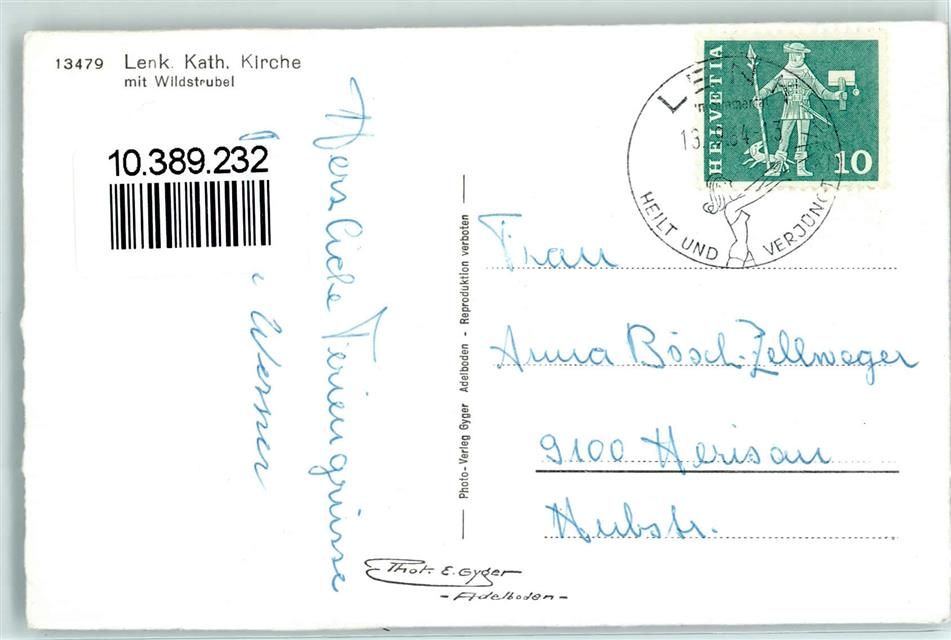 13479 Lenk. Kath. Kirche
mit Wildstrubel
10.389.232
Herzliche Feriengrüsse
Werner
Photo-Verlag Gyger Adelboden - Reproduktion verboten
Phot. E. Gyger
- Adelboden -
HELVETIA
10
LENK
HEILT UND VERJÜNGT
Frau
Anna Bösch-Zellweger
9100 Herisau
Hubstr.